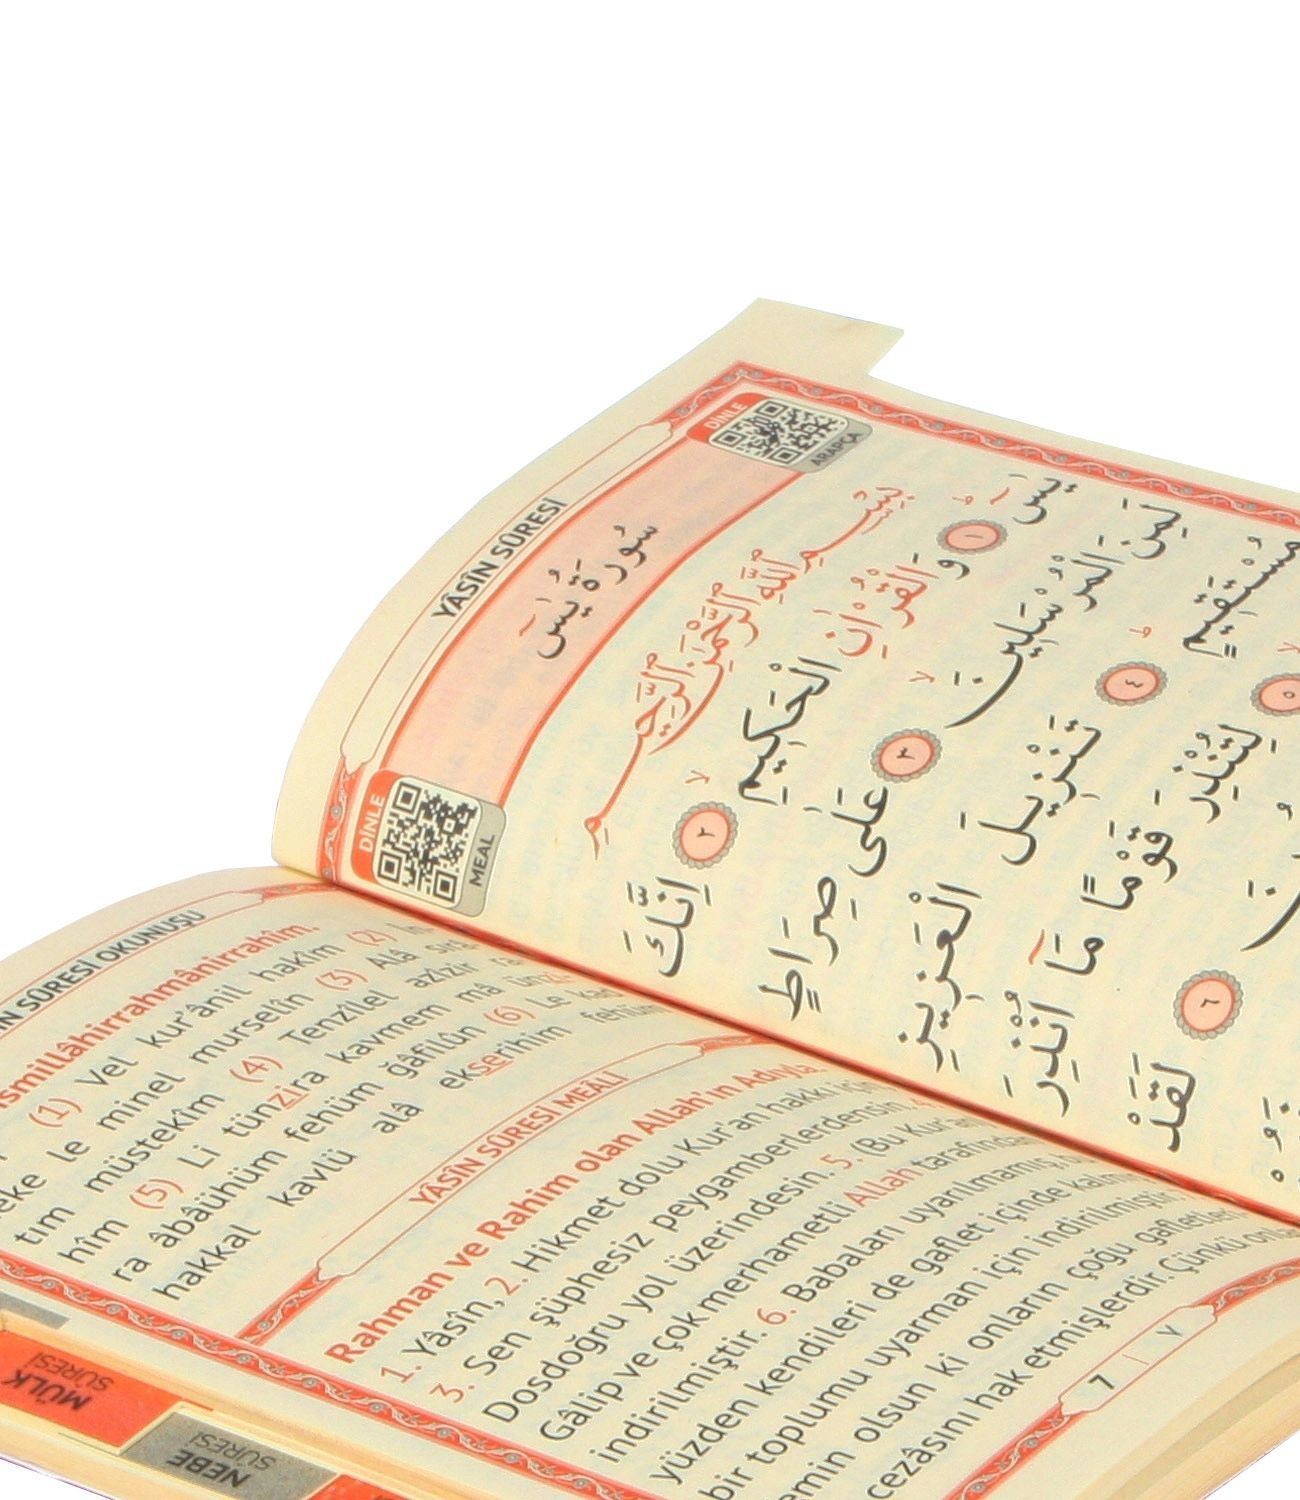 YÂSÎN SÛRESİ
DİNLE
ARAPÇA
سُورَةُ يٰسٓ
DİNLE
MEAL
بِسْــــمِ اللّٰهِ الرَّحْمٰنِ الرَّحٖيـــمِ
يٰسٓ ۚ ﴿١﴾ وَالْقُرْاٰنِ الْحَكٖيمِ ۙ ﴿٢﴾ اِنَّكَ
لَمِنَ الْمُرْسَلٖينَ ۙ ﴿٣﴾ عَلٰى صِرَاطٍ
مُسْتَقٖيمٍ ۜ ﴿٤﴾ تَنْزٖيلَ الْعَزٖيزِ
﴿٥﴾ لِتُنْذِرَ قَوْمًا مَٓا اُنْذِرَ
﴿٦﴾ لَقَدْ
SÛRESİ OKUNUŞU
(1) Vel kur'ânil hakîm (2)
le minel murselîn (3) Alâ
tım müstekîm (4) Tenzîlel azîzir
hîm (5) Li tünzira kavmem mâ
ra âbâühüm fehüm ğâfilûn (6) Le
hakkal kavlü alâ ekserihim fehüm
YÂSÎN SÛRESİ MEÂLİ
Rahman ve Rahim olan Allah'ın Adıyla.
1. Yâsîn, 2. Hikmet dolu Kur'an hakkı için
3. Sen şüphesiz peygamberlerdensin.
Dosdoğru yol üzerindesin. 5. (Bu Kur'an
Gâlip ve çok merhametli Allah tarafından
indirilmiştir. 6. Babaları uyarılmamış,
yüzden kendileri de gaflet içinde
bir toplumu uyarman için indirilmiştir.
emin olsun ki onların çoğu
cezâsını hak etmişlerdir. Çünkü
7 | ٧
MÜLK
SÛRESİ
NEBE
SÛRESİ